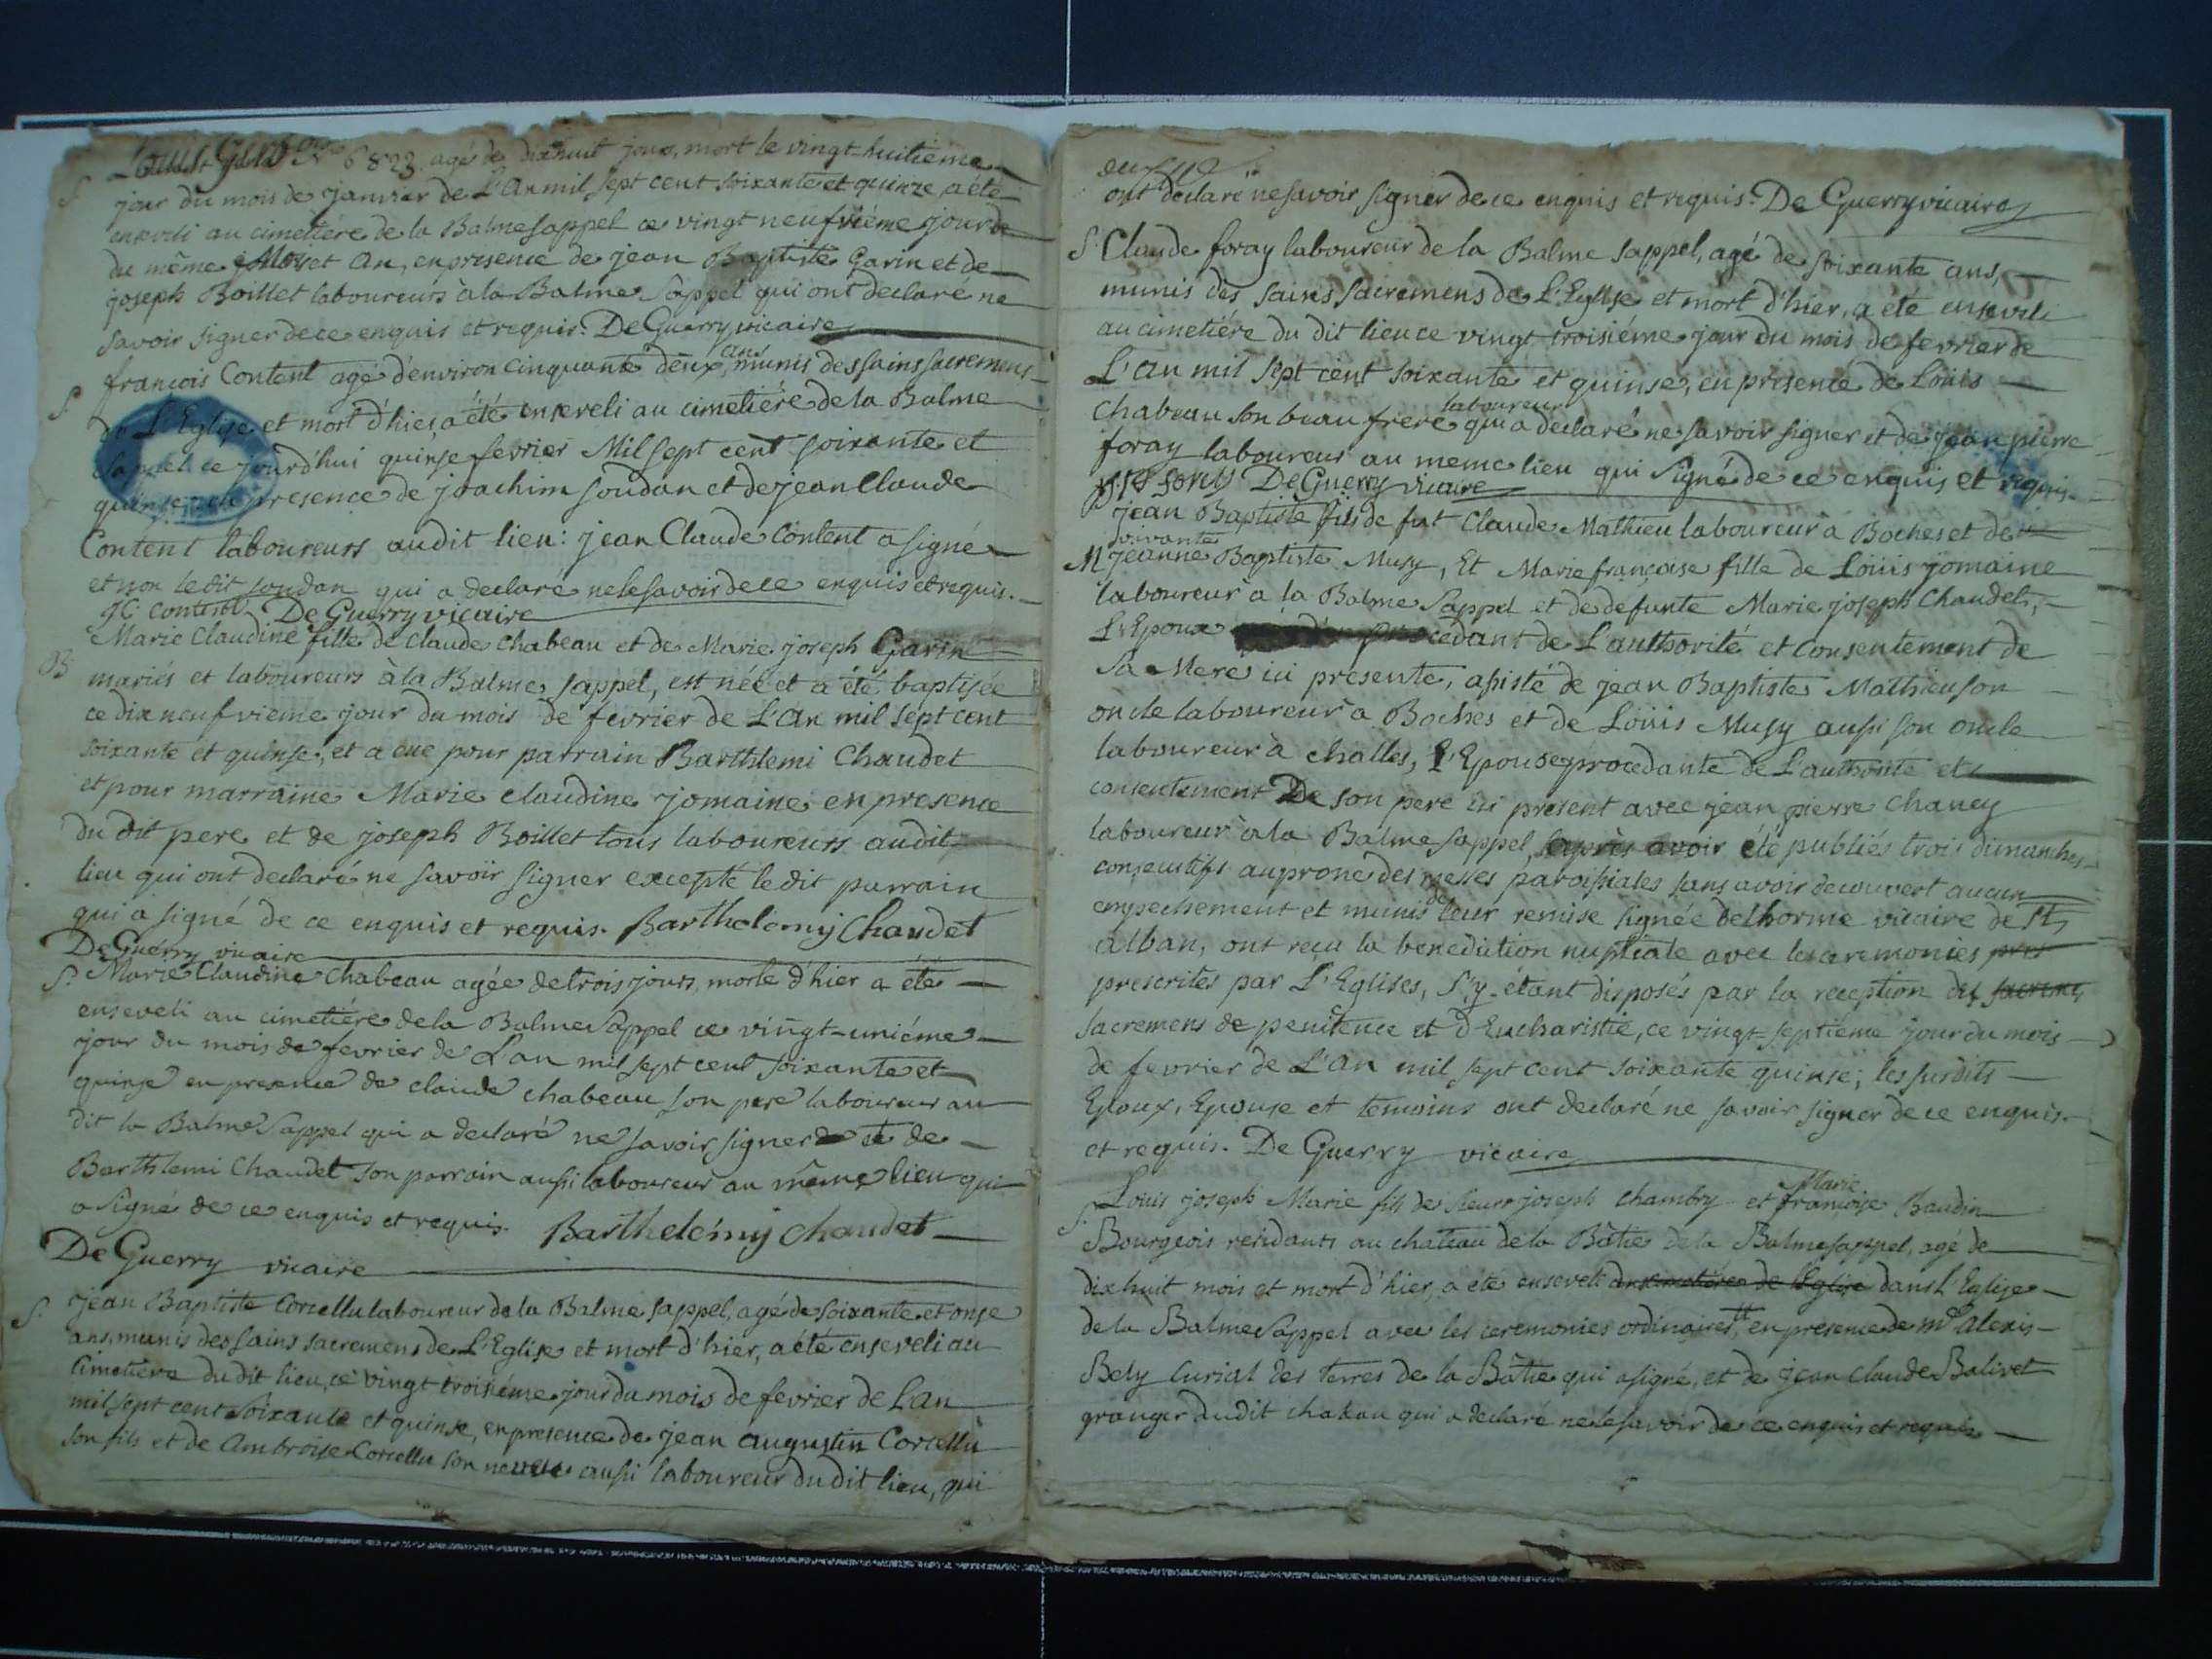 Louis Garin N° 6823 agé de dixhuit jours, mort le vingt-huitiéme
S. jour du mois de janvier de L'an mil sept cent soixante et quinze a été
enseveli au cimetiére de la Balme Sappel ce vingt neufviéme jour de
du même Mois et An, en presence de jean Baptiste Garin et de
joseph Boillet laboureurs à la Balme Sappel qui ont declaré ne
savoir signer de ce enquis et requis. De Guerry vicaire
françois Content agé d'environ cinquante deux ans munis des sains sacremens
S. de L'Eglise et mort d'hier, a été enseveli au cimetiére de la Balme
Sappel ce jourd'hui quinse fevrier Mil sept cent soixante et
quinse, en presence de joachim soudan et de jean Claude
Content laboureurs audit lieu: jean Claude Content a signé
et non le dit soudan qui a declaré ne le savoir de ce enquis et requis.
JC content De Guerry vicaire
Marie Claudine fille de Claude Chabeau et de Marie joseph Garin
B. mariés et laboureurs à la Balme sappel, est née et a été baptisée
ce dix neufvieme jour du mois de fevrier de L'an mil sept cent
soixante et quinse; et a eue pour parrain Barthlemi Chaudet
et pour marraine Marie claudine jomaine en presence
du dit pere et de joseph Boillet tous laboureurs audit
lieu qui ont declaré ne savoir signer excepté le dit parrain
qui a signé de ce enquis et requis. Barthelemy Chaudet
De Guerry vicaire
S. Marie Claudine Chabeau agée de trois jours, morte d'hier a été
enseveli au cimetiére de la Balme Sappel ce vingt-uniéme
jour du mois de fevrier de L'an mil sept cent soixante et
quinse en presence de claude chabeau son pere laboureur au
dit la Balme Sappel qui a declaré ne savoir signer et de
Barthlemi Chaudet son parrain aussi laboureur au même lieu qui
a signé de ce enquis et requis. Barthelémy chaudet
De Guerry vicaire
S. jean Baptiste Corcellu laboureur de la Balme sappel, agé de soixante et onse
ans, munis des sains sacremens de L'Eglise et mort d'hier, a été enseveli au
Cimetiére du dit lieu, ce vingt troisiéme jour du mois de fevrier de L'an
mil sept cent soixante et quinse, en presence de jean augustin Corcellu
son fils et de Ambroise Corcellu son neveu aussi laboureur du dit lieu, qui
ont declaré ne savoir signer de ce enquis et requis. De Guerry vicaire
S. Claude foray laboureur de la Balme sappel, agé de soixante ans,
munis des sains sacremens de L'Eglise et mort d'hier, a été enseveli
au cimetiére du dit lieu ce vingt troisiéme jour du mois de fevrier de
L'an mil sept cent soixante et quinse, en presence de Loüis
Chabeau son beau frere laboureur qui a declaré ne savoir signer et de jean pierre
foray laboureur au meme lieu qui Signé de ce enquis et requis.
De Guerry vicaire
jean Baptiste fils de fut Claude Mathieu laboureur à Boches et de
vivante
M jeanne Baptiste Musy, Et Marie françoise fille de Loüis jomaine
laboureur à la Balme Sappel et de defunte Marie joseph Chaudet,
L'Epoux procedant de L'authorité et Consentement de
sa Mere ici presente, assisté de jean Baptiste Mathieu son
oncle laboureur à Boches et de Loüis Musy aussi son oncle
laboureur à challes, L'Epouse procedante de L'authorité et
consentement De son pere ici present avec jean pierre Chaney
laboureur à la Balme sappel, après avoir été publiés trois dimanches
consecutifs au prone des messes paroissiales sans avoir decouvert aucun
empechement et munis de leur remise signée Delhorme vicaire de St
alban, ont reçu la benediction nuptiale avec les ceremonies pres
prescrites par L'Eglises, S'y étant disposés par la reception des sacremens
sacremens de penitence et d'Eucharistie, ce vingt-septiéme jour du mois
de fevrier de L'an mil sept cent soixante quinse; les susdits
Epoux, Epouse et temoins ont declaré ne savoir signer de ce enquis
et requis. De Guerry vicaire
S. Louis joseph Marie fils de sieurs joseph Chambry et Marie françoise Baudin
Bourgeois residants au chateau de la Bâtie de la Balme sappel, agé de
dix huit mois et mort d'hier, a été enseveli au cimetiére de l'Eglise dans L'Eglise
de la Balme Sappel avec les ceremonies ordinaires, en presence de Me Alexis
Bely Curial des terres de la Bâtie qui a signé, et de jean Claude Balivet
granger dudit chateau qui a declaré ne le savoir de ce enquis et requis